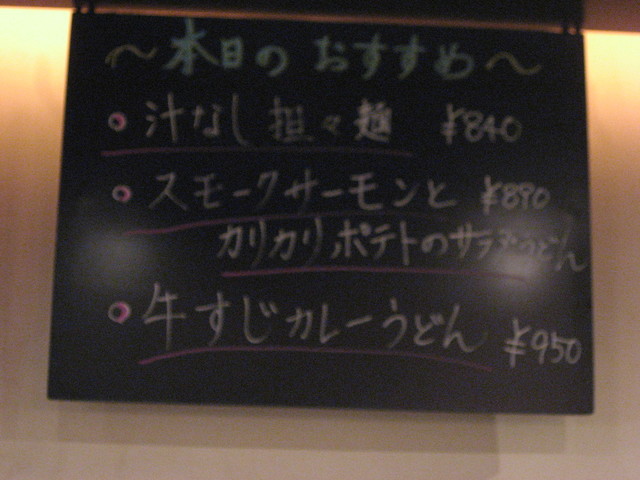 ～本日のおすすめ～
汁なし担々麺 ¥840
スモークサーモンと ¥890
カリカリポテトのサラダうどん
牛すじカレーうどん ¥950